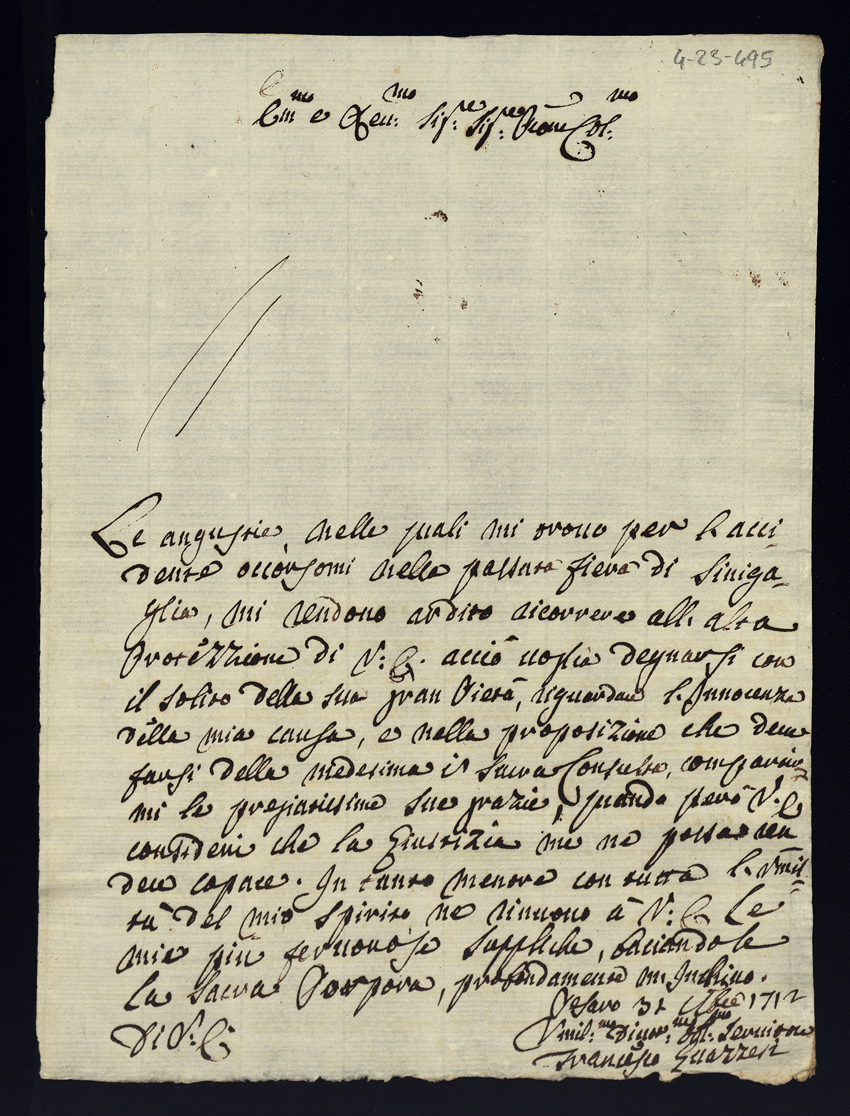 4-23-495
Em.mo e Reu.mo Sig.re Sig.re Pron Col.mo
Le angustie, nelle quali mi trouo per l'acci-
dente occorsomi nella passata fiera di Siniga-
glia, mi rendono ardito ricorrere all'alta
Protezzione di V. E. acciò uoglia degnarsi con
il solito della sua gran Pietà, riguardare l'Innocenza
della mia causa, e nella proposizione che deue
farsi della medesima in Sacra Consulta, compartir-
mi le pregiatissime sue grazie, quando però V. E.
consideri che la Giustizia me ne possa ren
dere capace. In tanto mentre con tutta l'Vmil-
tà del mio spirito ne rinuouo à V. E. Le
mie più feruorose suppliche, baciandole
la Sacra Porpora, profondamente m'Inchino.
Pesaro 31 1712
Di V. E.
Vmil.mo Diuot.mo Obl.mo Seruitore
Francesco Guazzesi